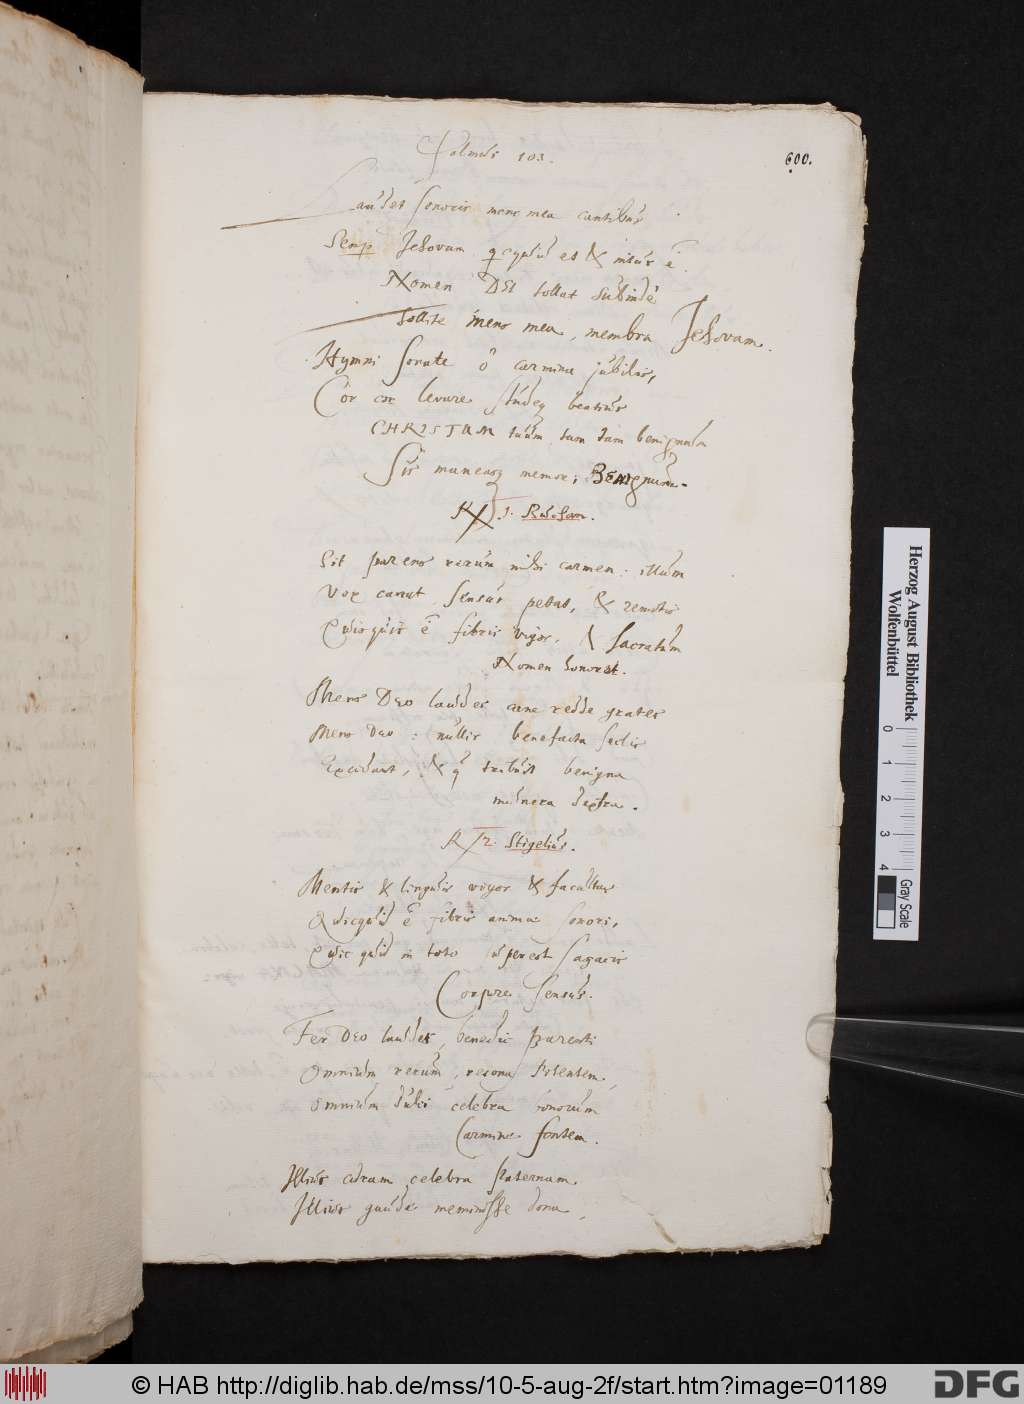 Psalmus 103.
600.
Laudet sonoris mens mea cantibus
Semp Jehovam, qcquid es & intus ē.
Nomen DEI tollat subinde
tollite mens mea, membra Jehovam.
Hymni sonate ô carmina jubilas,
Cor levare studeq beatius
CHRISTUM tuum tam tam benignum
Sis munerq memor, Benignum.
1. Rudolan.
Sit parens rerum mihi carmen: illum
Vox canat, sensus petat, & remotis
Quisquis ē fibris vigor, & sacratum
Nomen honoret.
Mens Deo laudes cane redde grates
Mens Deo: nullis benefacta seclis
Excidant, & q tribuit benigna
munera dextra.
2. Stigelius.
Mentis & linguis vigor & facultas
Quicquid ē fibris animae sonori,
Quic quid in toto superest sagacis
Corpore sensus.
Fer DEO laudes, benedic parenti
Omnium rerum, resona potentem,
omnium dulci celebra bonorum
Carmine fontem.
Illius curam celebra paternam,
Illius gaude meminisse dona,
Herzog August Bibliothek
Wolfenbüttel
0 1 2 3 4
Gray Scale
© HAB http://diglib.hab.de/mss/10-5-aug-2f/start.htm?image=01189
DFG